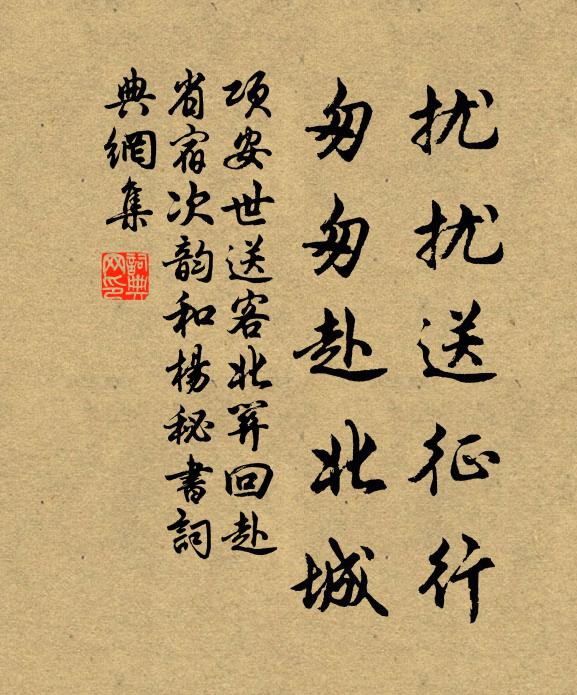 扰扰送征行
匆匆赴北城
项安世送客北关回赴
省宿次韵和杨秘书词
典网集
詞典網印